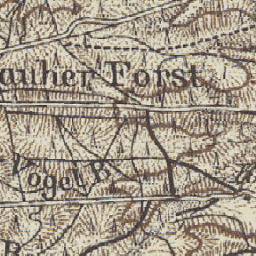 auher Forst
Vogel B.